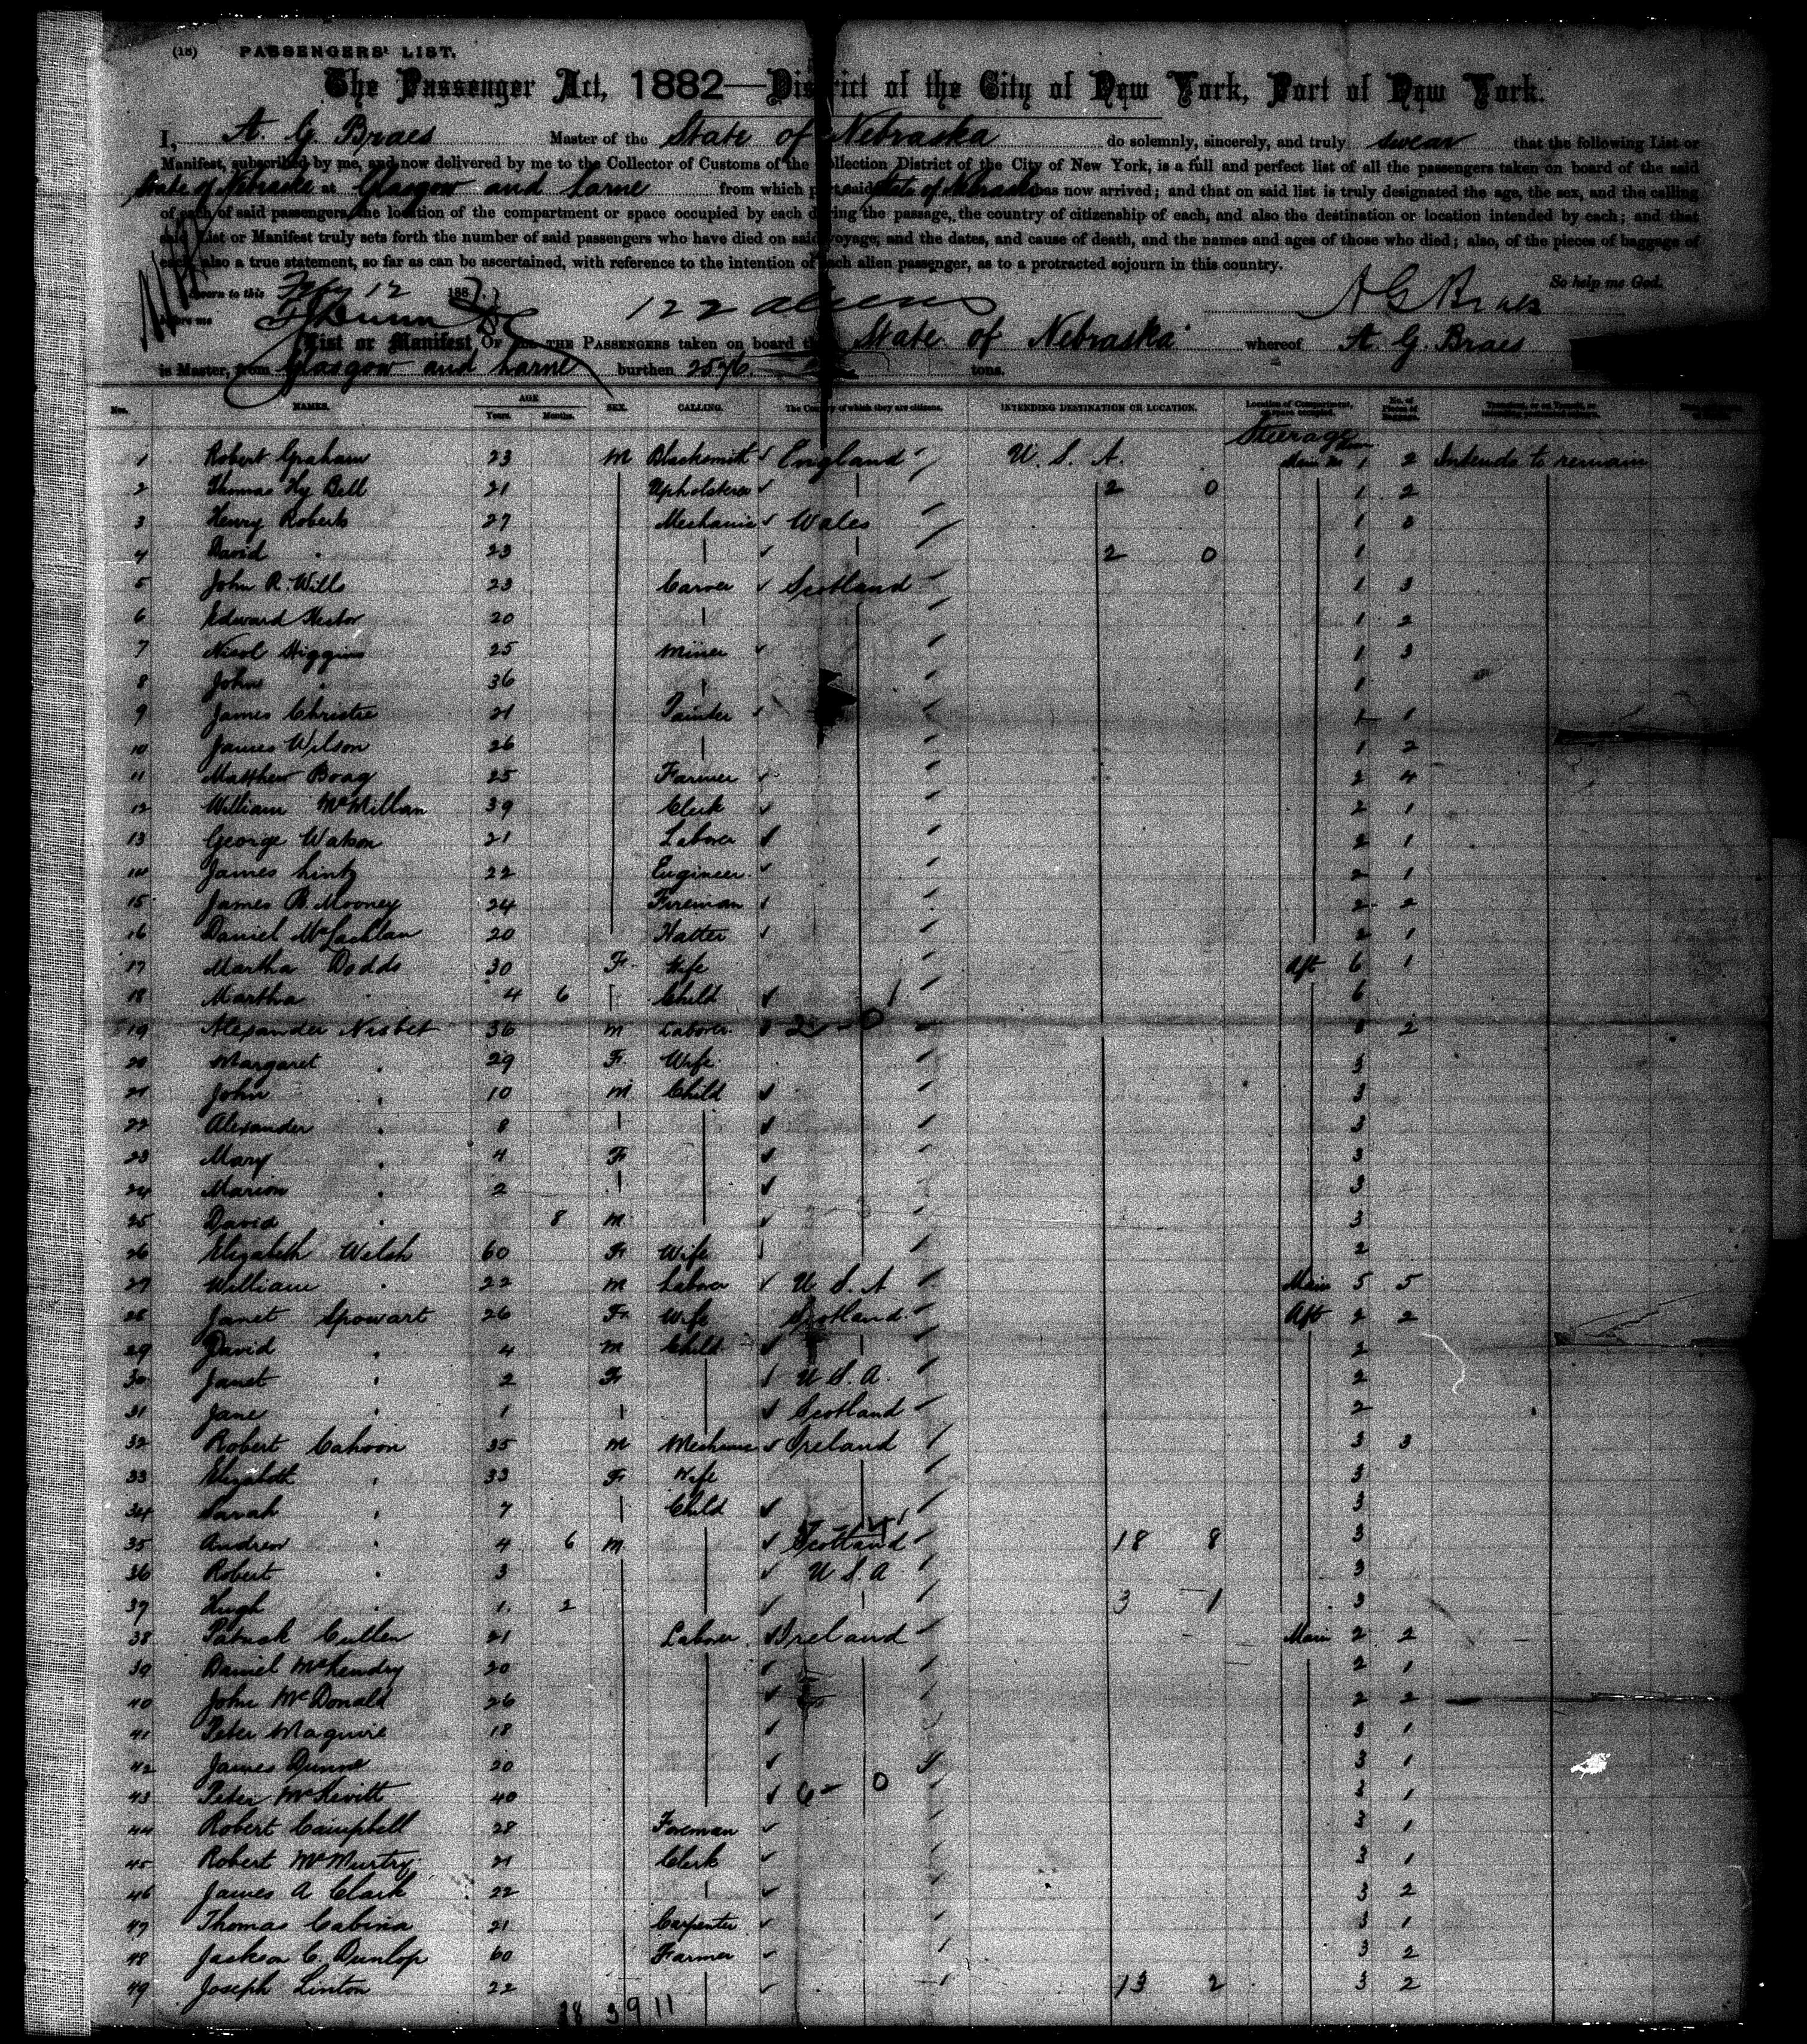 (15) PASSENGERS' LIST.
The Passenger Act, 1882—District of the City of New York, Port of New York.
I, A. G. Braes Master of the State of Nebraska do solemnly, sincerely, and truly swear that the following List or
Manifest, subscribed by me, and now delivered by me to the Collector of Customs of the Collection District of the City of New York, is a full and perfect list of all the passengers taken on board of the said
State of Nebraska at Glasgow and Larne from which port said State of Nebraska has now arrived; and that on said list is truly designated the age, the sex, and the calling
of each of said passengers, the location of the compartment or space occupied by each during the passage, the country of citizenship of each, and also the destination or location intended by each; and that
said List or Manifest truly sets forth the number of said passengers who have died on said voyage, and the dates, and cause of death, and the names and ages of those who died; also, of the pieces of baggage of
each also a true statement, so far as can be ascertained, with reference to the intention of each alien passenger, as to a protracted sojourn in this country.
So help me God.
Sworn to this 12 188
before me 122 aliens A G Braes
List or Manifest OF ALL THE PASSENGERS taken on board the State of Nebraska whereof A. G. Braes
is Master, from Glasgow and Larne burthen tons.
Nos. NAMES. AGE Years. Months. SEX. CALLING. The Country of which they are citizens. INTENDING DESTINATION OR LOCATION. Location of Compartment, or space occupied. No. of Pieces of Baggage.
Steerage
1 Robert Graham 23 M Blacksmith England U. S. A. Main 1 2 Intends to remain
2 Thomas Hy Bell 21 Upholsterer 2 0 1 2
3 Henry Roberts 27 Mechanic Wales 1
4 David " 23 2 0 1
5 John R. Wills 23 Carver Scotland 1 3
6 Edward Hector 20 1 2
7 Nicol Higgins 25 Miner 1 3
8 John " 36 1
9 James Christie 21 Painter 1 1
10 James Wilson 26 1 2
11 Matthew Boag 25 Farmer 2 4
12 William McMillan 39 Clerk 2 1
13 George Watson 21 Laborer 2 1
14 James Lintz 22 Engineer 2 1
15 James B. Mooney 24 Fireman 2 2
16 Daniel McLachlan 20 Hatter 2 1
17 Martha Dodds 30 F. Wife Aft 6 1
18 Martha " 4 6 Child 6
19 Alexander Nisbet 36 M Laborer 2 0 2
20 Margaret " 29 F. Wife 3
21 John " 10 M Child 3
22 Alexander " 8 3
23 Mary " 4 F. 3
24 Marion " 2 3
25 David " 8 M 3
26 Elizabeth Welsh 60 F. Wife 2
27 William " 22 M Laborer U S. A Main 5 5
28 Janet Spowart 26 F. Wife Scotland Aft 2 2
29 David " 4 M Child 2
30 Janet " 2 F. U S. A. 2
31 Jane " 1 Scotland 2
32 Robert Cahoon 35 M Mechanic Ireland 3 3
33 Elizabeth " 33 F. Wife 3
34 Sarah " 7 Child 3
35 Andrew " 4 6 M Scotland 18 8 3
36 Robert " 3 U S. A 3
37 Hugh " 1 2 3 1 3
38 Patrick Cullen 21 Laborer Ireland Main 2 2
39 Daniel McKendry 20 2 1
40 John McDonald 26 2 2
41 Peter Maguire 18 3 1
42 James Dunne 20 3 1
43 Peter McKevitt 40 6 0 3 1
44 Robert Campbell 28 Foreman 3 1
45 Robert McMurtry 21 Clerk 3 1
46 James A Clark 22 3 2
47 Thomas Cabina 21 Carpenter 3 1
48 Jackson C. Dunlop 60 Farmer 3 2
49 Joseph Linton 22 13 2 3 2
38 3 9 11